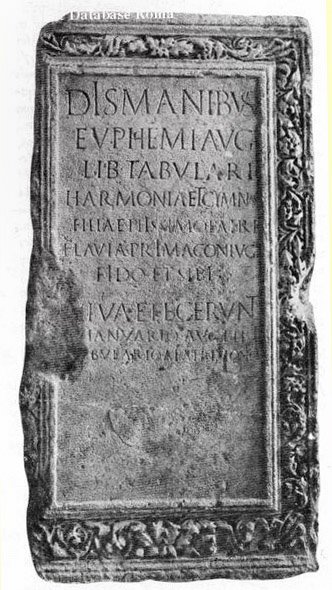 Database Roma
DIS MANIBVS
EVPHEMI AVG
LIB TABVLARI
HARMONIA ET GYMN
FILIAE PIISSIMO PATRI
FLAVIA PRIMA CONIVG
FIDO ET SIBI
IVAE FECERVNT
IANVARIO AVG LIB
BVLARIO A PATRIMON